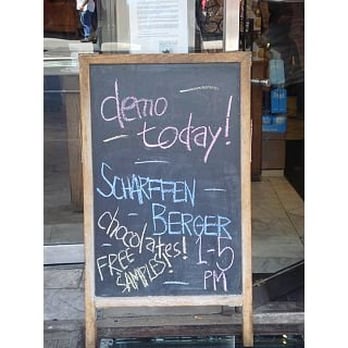 demo
today!
SCHARFFEN
BERGER
chocolates!
1-5
PM
FREE
SAMPLES!